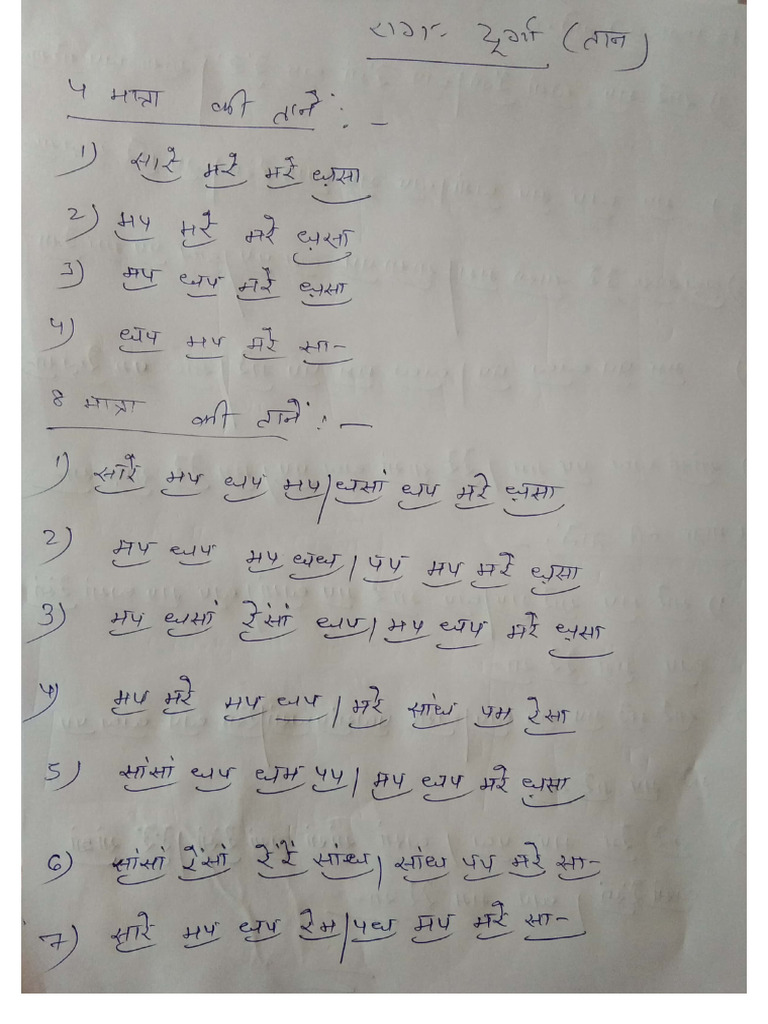 राग- दूर्गा (तान)
4 मात्रा की तानें :-
1) सारे मरे मरे ध़सा
2) मप मरे मरे ध़सा
3) मप धप मरे ध़सा
4) धप मप मरे सा-
8 मात्रा की तानें :-
1) सारे मप धप मप | धसां धप मरे ध़सा
2) मप धप मप धध | पप मप मरे ध़सा
3) मप धसां रेंसां धप | मप धप मरे ध़सा
4) मप मरे मप धप | मरे सांध पम रेसा
5) सांसां धप धम पप | मप धप मरे ध़सा
6) सांसां रेंसां रेंरें सांध | सांध पप मरे सा-
7) सारे मप धप रेम | पध मप मरे सा-